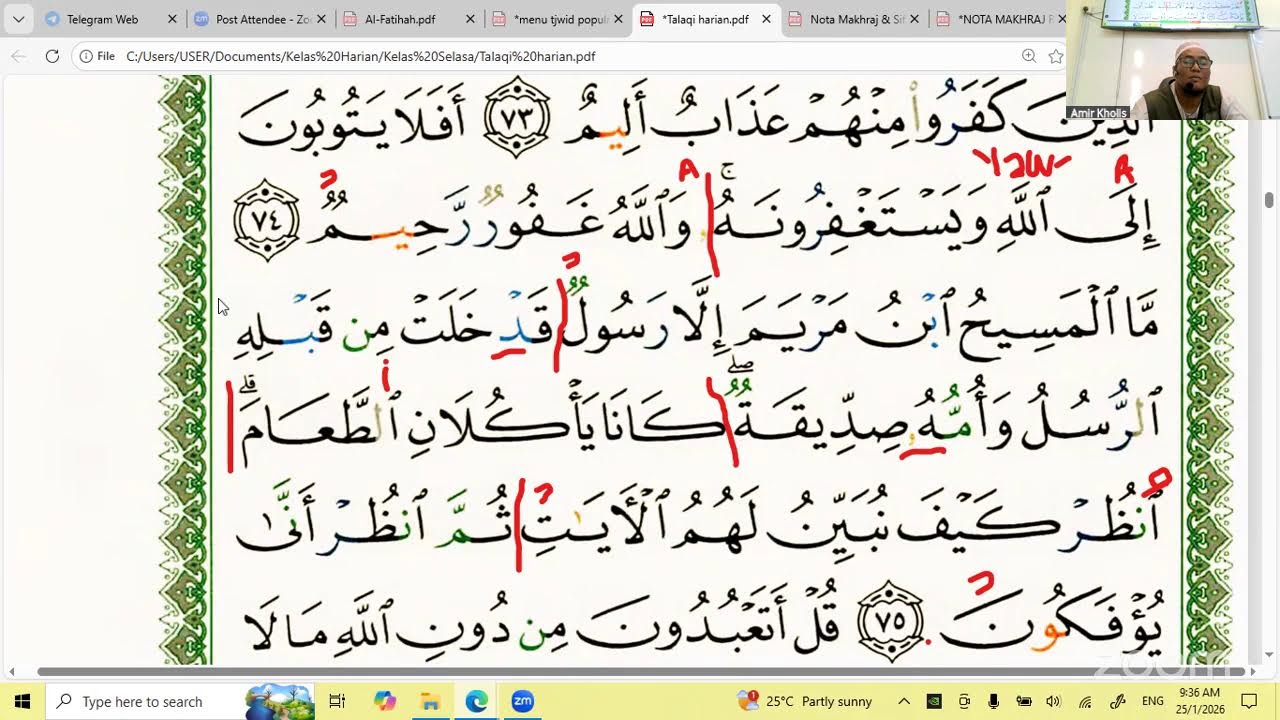 Telegram Web
Post Attendee - Zo
Al-Fatihah.pdf
*Talaqi harian.pdf
Nota Makhraj & Sif
File C:/Users/USER/Documents/Kelas%20Harian/Kelas%20Selasa/Talaqi%20harian.pdf
Amir Kholis
ٱلَّذِينَ كَفَرُوا۟ مِنْهُمْ عَذَابٌ أَلِيمٌ ٧٣ أَفَلَا يَتُوبُونَ
A Yaw A
إِلَى ٱللَّهِ وَيَسْتَغْفِرُونَهُۥ ۚ وَٱللَّهُ غَفُورٌ رَّحِيمٌ ٧٤
مَّا ٱلْمَسِيحُ ٱبْنُ مَرْيَمَ إِلَّا رَسُولٌ قَدْ خَلَتْ مِن قَبْلِهِ
i
ٱلرُّسُلُ وَأُمُّهُۥ صِدِّيقَةٌ ۖ كَانَا يَأْكُلَانِ ٱلطَّعَامَ ۗ
ٱنظُرْ كَيْفَ نُبَيِّنُ لَهُمُ ٱلْـَٔايَـٰتِ ثُمَّ ٱنظُرْ أَنَّىٰ
يُؤْفَكُونَ ٧٥ قُلْ أَتَعْبُدُونَ مِن دُونِ ٱللَّهِ مَا لَا
zoom
Type here to search
25°C Partly sunny
ENG
9:36 AM
25/1/2026